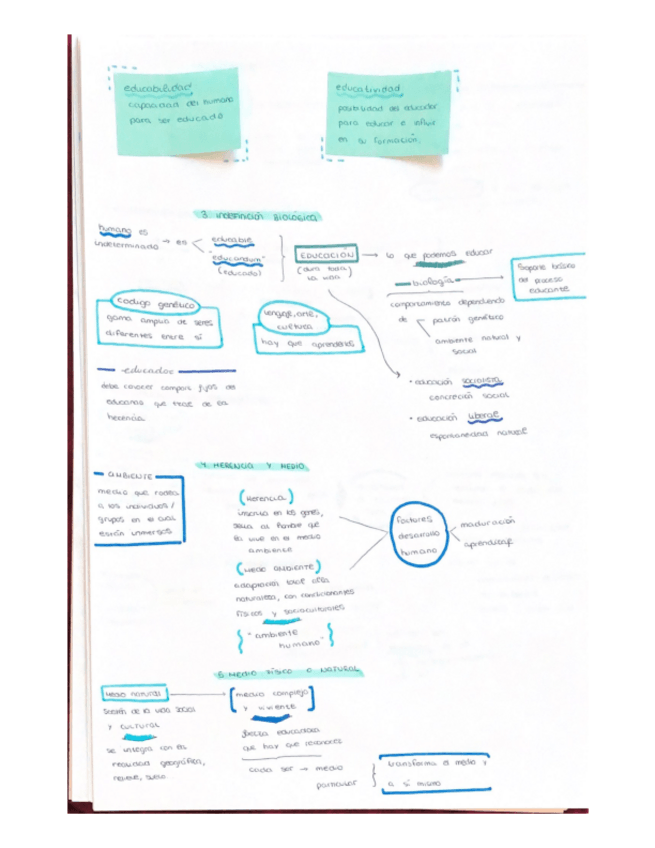 educabilidad
capacidad del humano
para ser educado
educatividad
posibilidad del educador
para educar e influir
en su formación.
3. indefinición BIOLÓGICA
humano es
indeterminado → es
educable
"educandum"
(educado)
EDUCACIÓN
(dura toda
la vida)
lo que podemos educar
biología
Soporte básico
del proceso
educante
comportamiento dependiendo
de
patrón genético
ambiente natural y
social
código genético
gama amplia de seres
diferentes entre sí
lenguaje, arte,
cultura
hay que aprenderlos
educador
debe conocer comport. fijos del
educando que trae de la
herencia.
• educación socialista
concreción social
• educación liberal
espontaneidad natural
4. HERENCIA Y MEDIO
AMBIENTE
medio que rodea
a los individuos/
grupos en el cual
están inmersos
(Herencia)
inscrita en los genes,
en el medio
ambiente
(MEDIO AMBIENTE)
adaptación
naturaleza, con condicionantes
físicos y socioculturales
"ambiente
humano"
factores
desarrollo
humano
maduración
aprendizaje
5. MEDIO FÍSICO O NATURAL
Medio natural
Sostén de la vida
y cultural
se integra con la
realidad geográfica,
relieve, suelo.
medio complejo
y viviente
fuerza educadora
que hay que
cada ser → medio
particular
transforma el medio y
a sí mismo